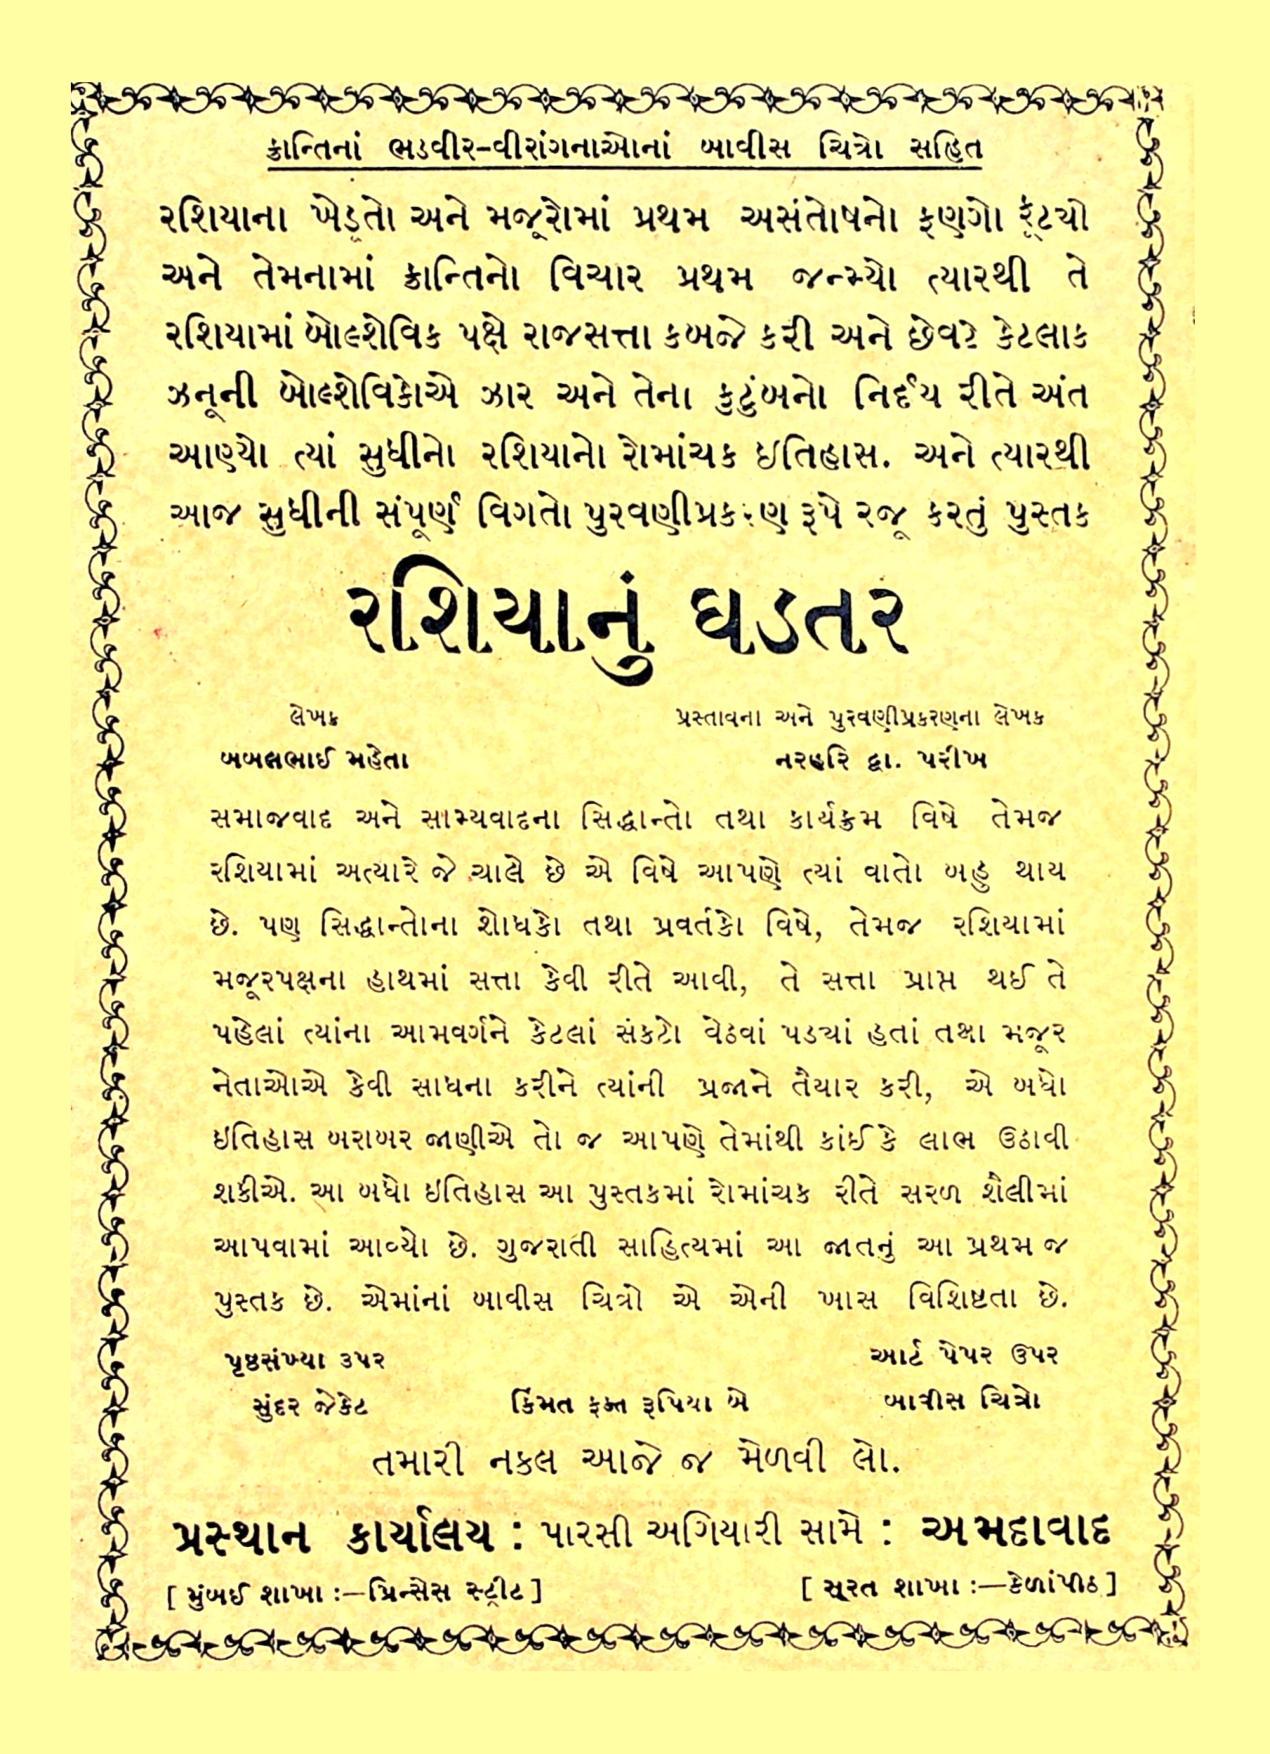 ક્રાન્તિનાં ભડવીર-વીરાંગનાઓનાં બાવીસ ચિત્રો સહિત
રશિયાના ખેડૂતો અને મજૂરોમાં પ્રથમ અસંતોષનો ફણગો ફૂટ્યો
અને તેમનામાં ક્રાન્તિનો વિચાર પ્રથમ જન્મ્યો ત્યારથી તે
રશિયામાં બોલ્શેવિક પક્ષે રાજસત્તા કબજે કરી અને છેવટે કેટલાક
ઝનૂની બોલ્શેવિકોએ ઝાર અને તેના કુટુંબનો નિર્દય રીતે અંત
આણ્યો ત્યાં સુધીનો રશિયાનો રોમાંચક ઇતિહાસ. અને ત્યારથી
આજ સુધીની સંપૂર્ણ વિગતો પુરવણીપ્રકરણ રૂપે રજૂ કરતું પુસ્તક
રશિયાનું ઘડતર
લેખક પ્રસ્તાવના અને પુરવણીપ્રકરણના લેખક
બબલભાઈ મહેતા નરહરિ દ્વા. પરીખ
સમાજવાદ અને સામ્યવાદના સિદ્ધાન્તો તથા કાર્યક્રમ વિષે તેમજ
રશિયામાં અત્યારે જે ચાલે છે એ વિષે આપણે ત્યાં વાતો બહુ થાય
છે. પણ સિદ્ધાન્તોના શોધકો તથા પ્રવર્તકો વિષે, તેમજ રશિયામાં
મજૂરપક્ષના હાથમાં સત્તા કેવી રીતે આવી, તે સત્તા પ્રાપ્ત થઈ તે
પહેલાં ત્યાંના આમવર્ગને કેટલાં સંકટો વેઠવાં પડ્યાં હતાં તથા મજૂર
નેતાઓએ કેવી સાધના કરીને ત્યાંની પ્રજાને તૈયાર કરી, એ બધો
ઇતિહાસ બરાબર જાણીએ તો જ આપણે તેમાંથી કાંઈ કે લાભ ઉઠાવી
શકીએ. આ બધો ઇતિહાસ આ પુસ્તકમાં રોમાંચક રીતે સરળ શૈલીમાં
આપવામાં આવ્યો છે. ગુજરાતી સાહિત્યમાં આ જાતનું આ પ્રથમ જ
પુસ્તક છે. એમાંનાં બાવીસ ચિત્રો એ એની ખાસ વિશિષ્ટતા છે.
પૃષ્ઠસંખ્યા ૩૫૨ આર્ટ પેપર ઉપર
સુંદર જેકેટ કિંમત ફક્ત રૂપિયા બે બાવીસ ચિત્રો
તમારી નકલ આજે જ મેળવી લો.
પ્રસ્થાન કાર્યાલય : પારસી અગિયારી સામે : અમદાવાદ
[ મુંબઈ શાખા :—પ્રિન્સેસ સ્ટ્રીટ ] [ સૂરત શાખા :—કેળાંપીઠ ]